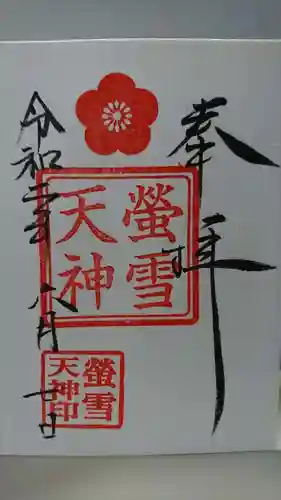 奉拝
螢雪
天神
螢雪
天神印
令和二年八月廿日